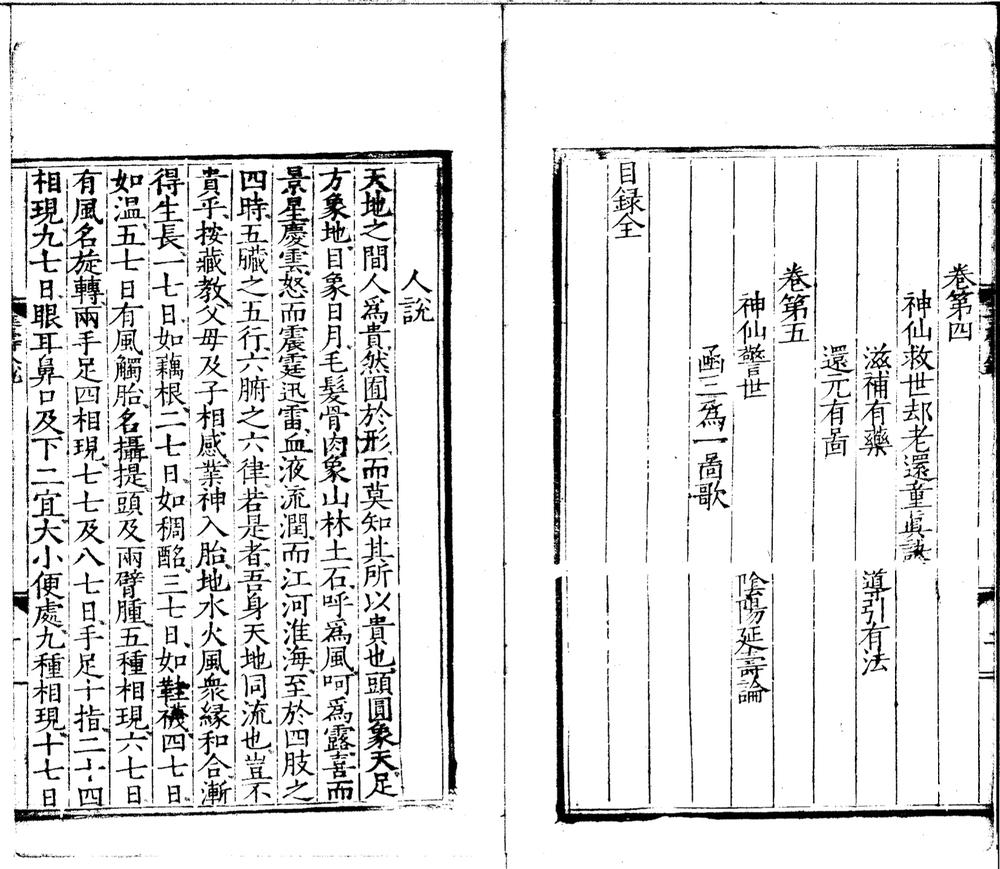 卷第四
神仙救世却老還童眞訣
滋補有藥 導引有法
還元有啚
卷第五
神仙警世 陰陽延壽論
函三為一啚歌
目録全
人說
天地之間人爲貴然囿於形而莫知其所以貴也頭圓象天足
方象地目象日月毛髮骨肉象山林土石呼爲風呵爲露喜而
景星慶雲怒而震霆迅雷血液流潤而江河淮海至於四肢之
四時五臟之五行六腑之六律若是者吾身天地同流也豈不
貴乎按藏教父母及子相感業神入胎地水火風衆緣和合漸
得生長一七日如藕根二七日如稠酩三七日如鞋襪四七日
如温五七日有風觸胎名攝提頭及兩臂腫五種相現六七日
有風名旋轉兩手足四相現七七及八七日手足十指二十四
相現九七日眼耳鼻口及下二宜大小便處九種相現十七日